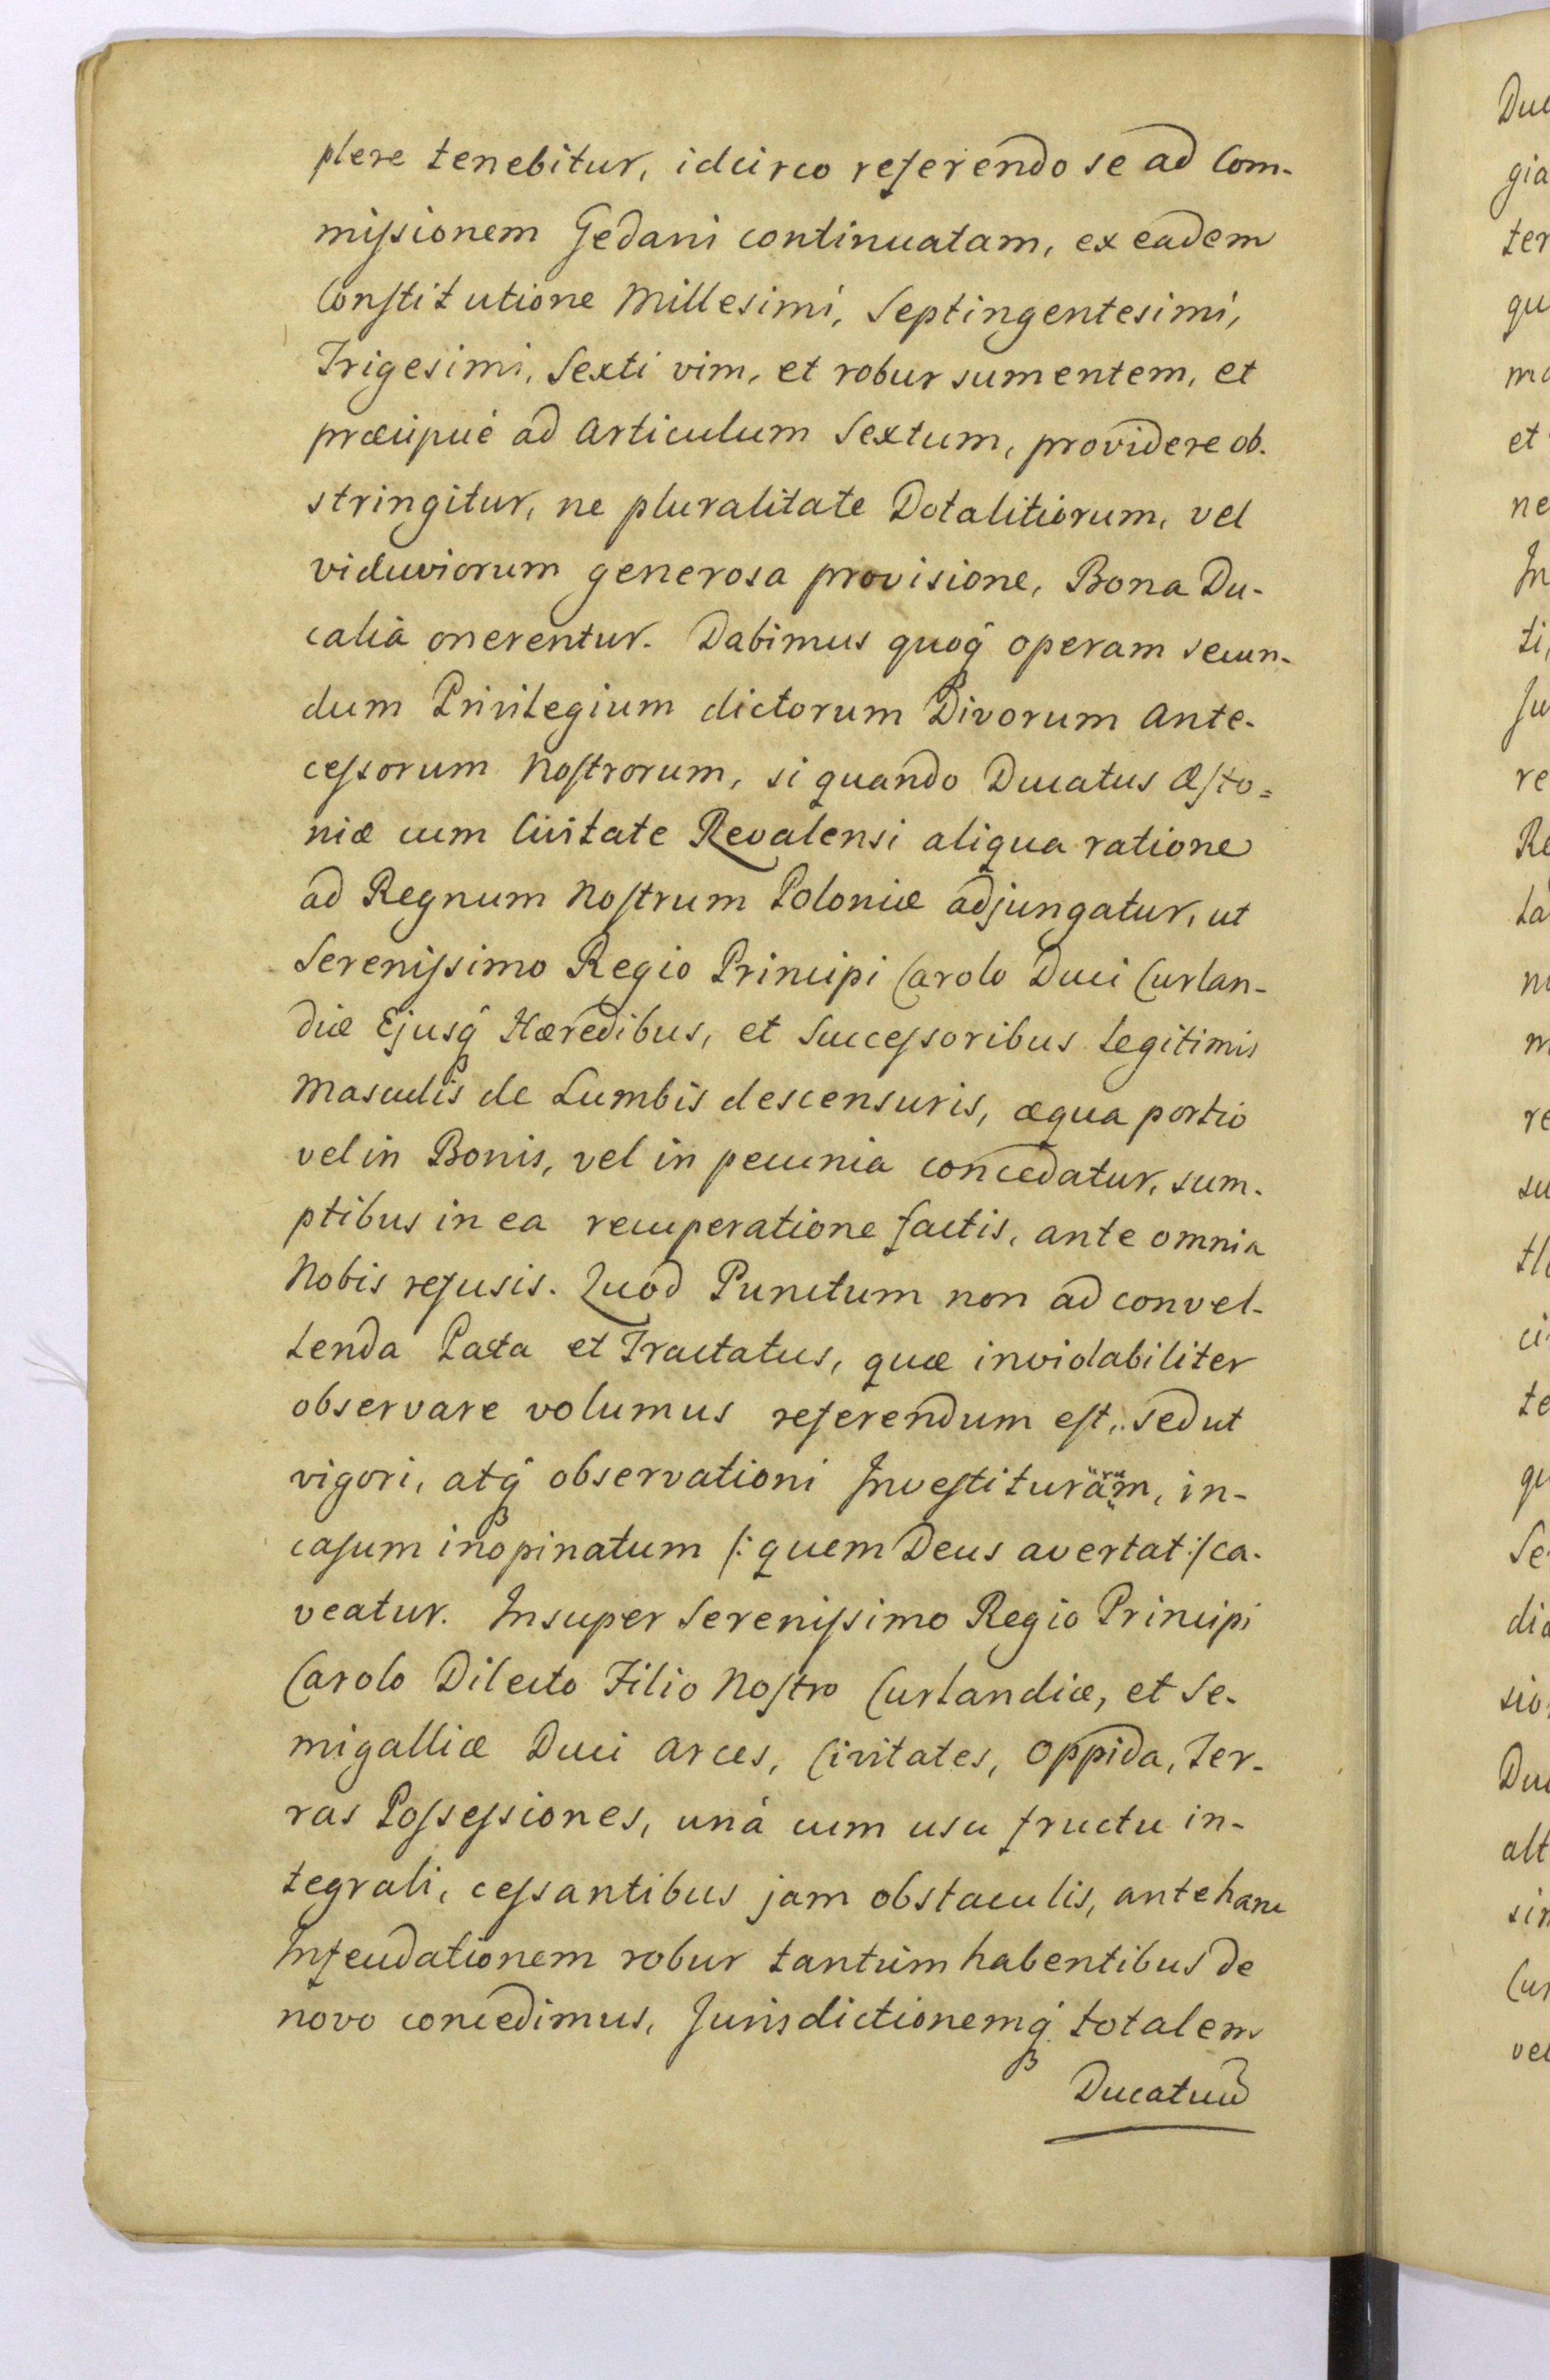 plere tenebitur, idcirco referendo se ad Com-
missionem Gedani continuatam, ex eadem
Constitutione Millesimi, Septingentesimi,
Trigesimi, Sexti vim, et robur sumentem, et
præcipué ad Articulum Sextum, providere ob-
stringitur, ne pluralitate Dotalitiorum, vel
viduviorum generosa provisione, Bona Du-
calia onerentur. Dabimus quoq́ operam secun-
dum Privilegium dictorum Divorum Ante-
cessorum Nostrorum, si quando Ducatus Æsto=
niæ cum Civitate Revalensi aliqua ratione
ad Regnum Nostrum Poloniæ adjungatur, ut
Serenissimo Regio Principi Carolo Duci Curlan-
diæ Ejusq́ Hæredibus, et Successoribus Legitimis
Masculis de Lumbis descensuris, æqua portio
vel in Bonis, vel in pecunia concedatur, sum-
ptibus in ea recuperatione factis, ante omnia
Nobis refusis. Quod Punctum non ad convel-
lenda Pacta et Tractatus, quæ inviolabiliter
observare volumus referendum est, sed ut
vigori, atq́ observationi Investiturarum, in-
casum inopinatum /: quem Deus avertat :/ ca-
veatur. Insuper Serenissimo Regio Principi
Carolo Dilecto Filio Nostro Curlandiæ, et Se-
migalliæ Duci Arces, Civitates, Oppida, Ter-
ras Possessiones, uná cum usu fructu in-
tegrali, cessantibus jam obstaculis, ante hanc
Infeudationem robur tantùm habentibus de
novo concedimus, Jurisdictionemq́ totalem
Ducatuum
Duc
gia
ter
qu
ma
et
ne
In
ti,
Ju
re
Re
La
m
re
su
ci
te
qu
Se
dia
sio
Du
alt
sin
Cur
vel